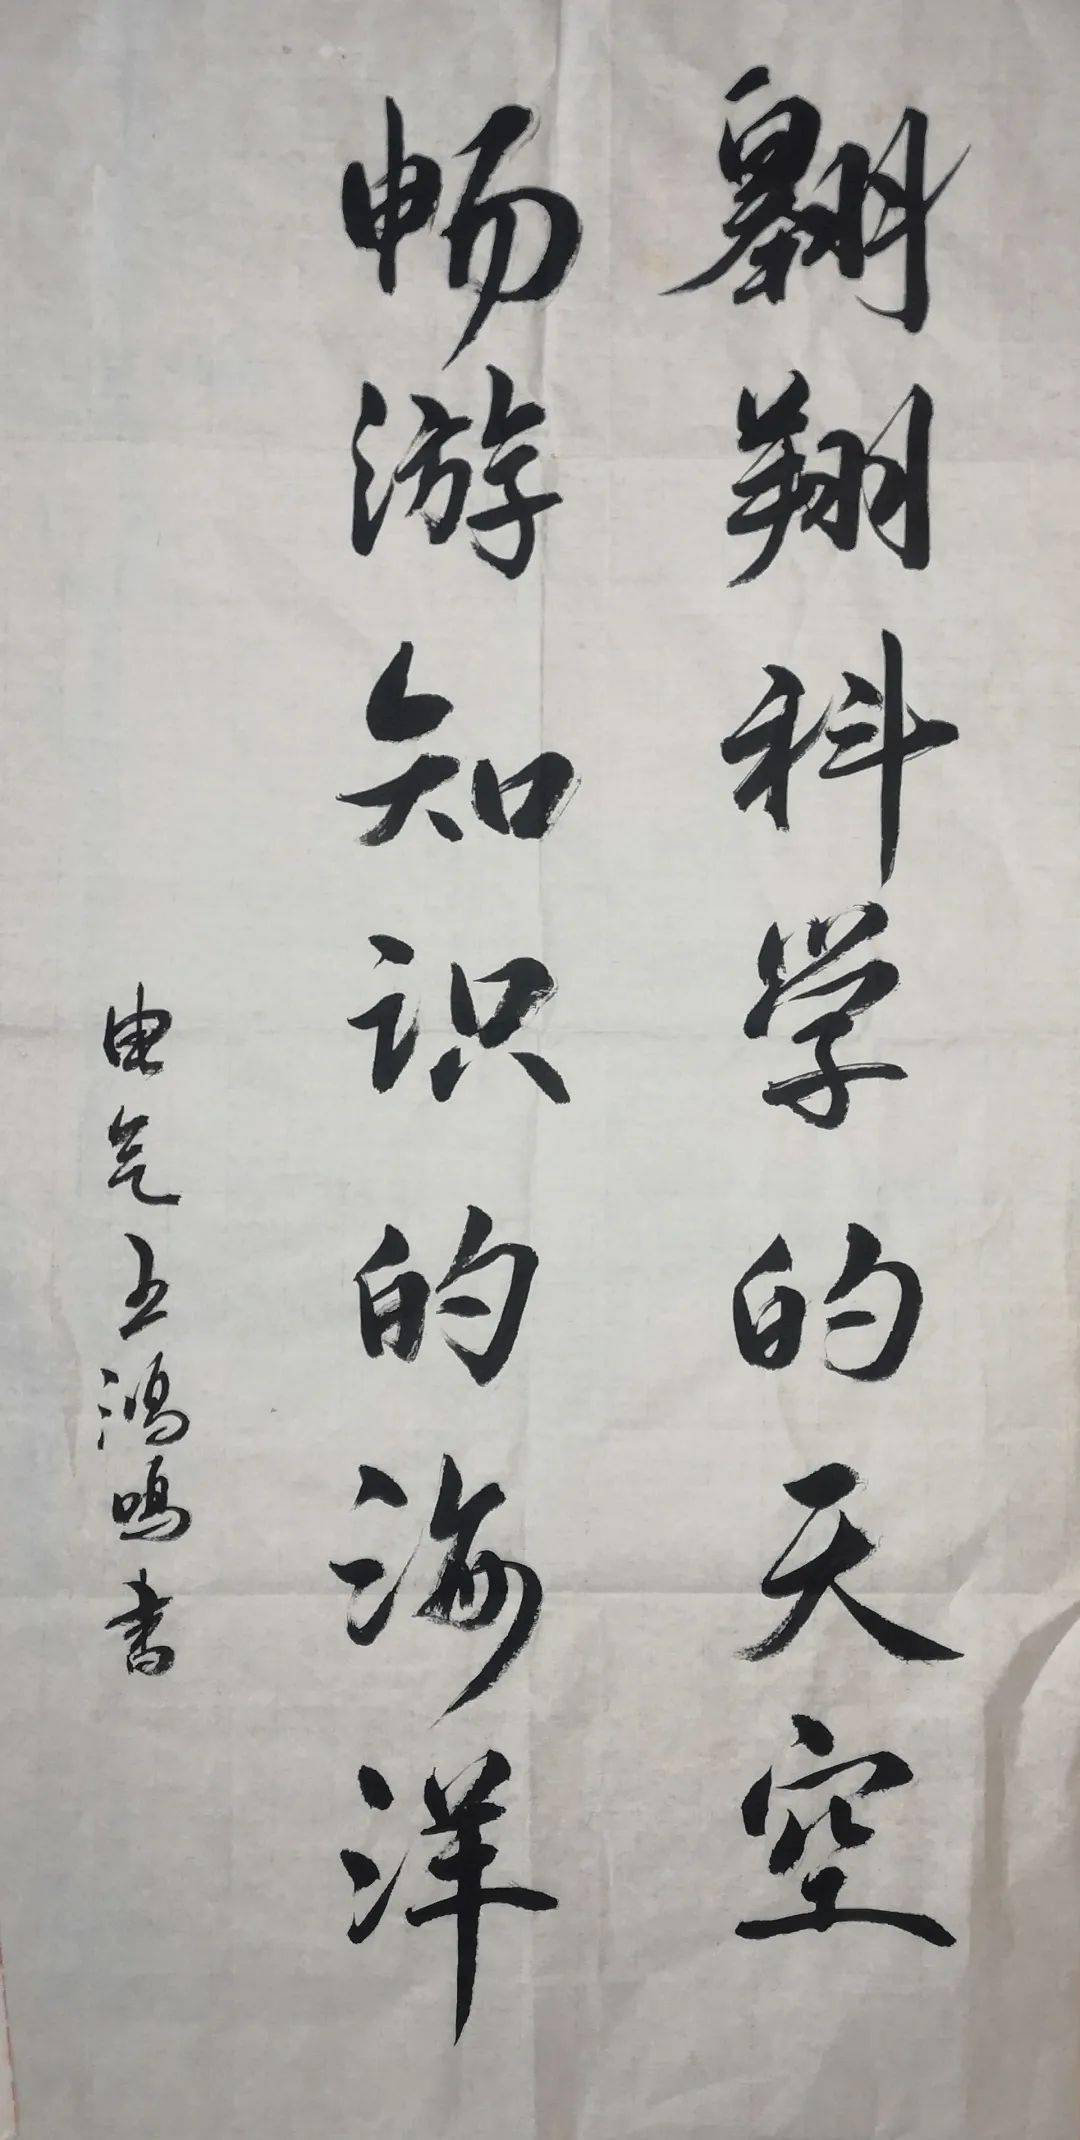 翱翔科学的天空
畅游知识的海洋
电气王鸿鸣书